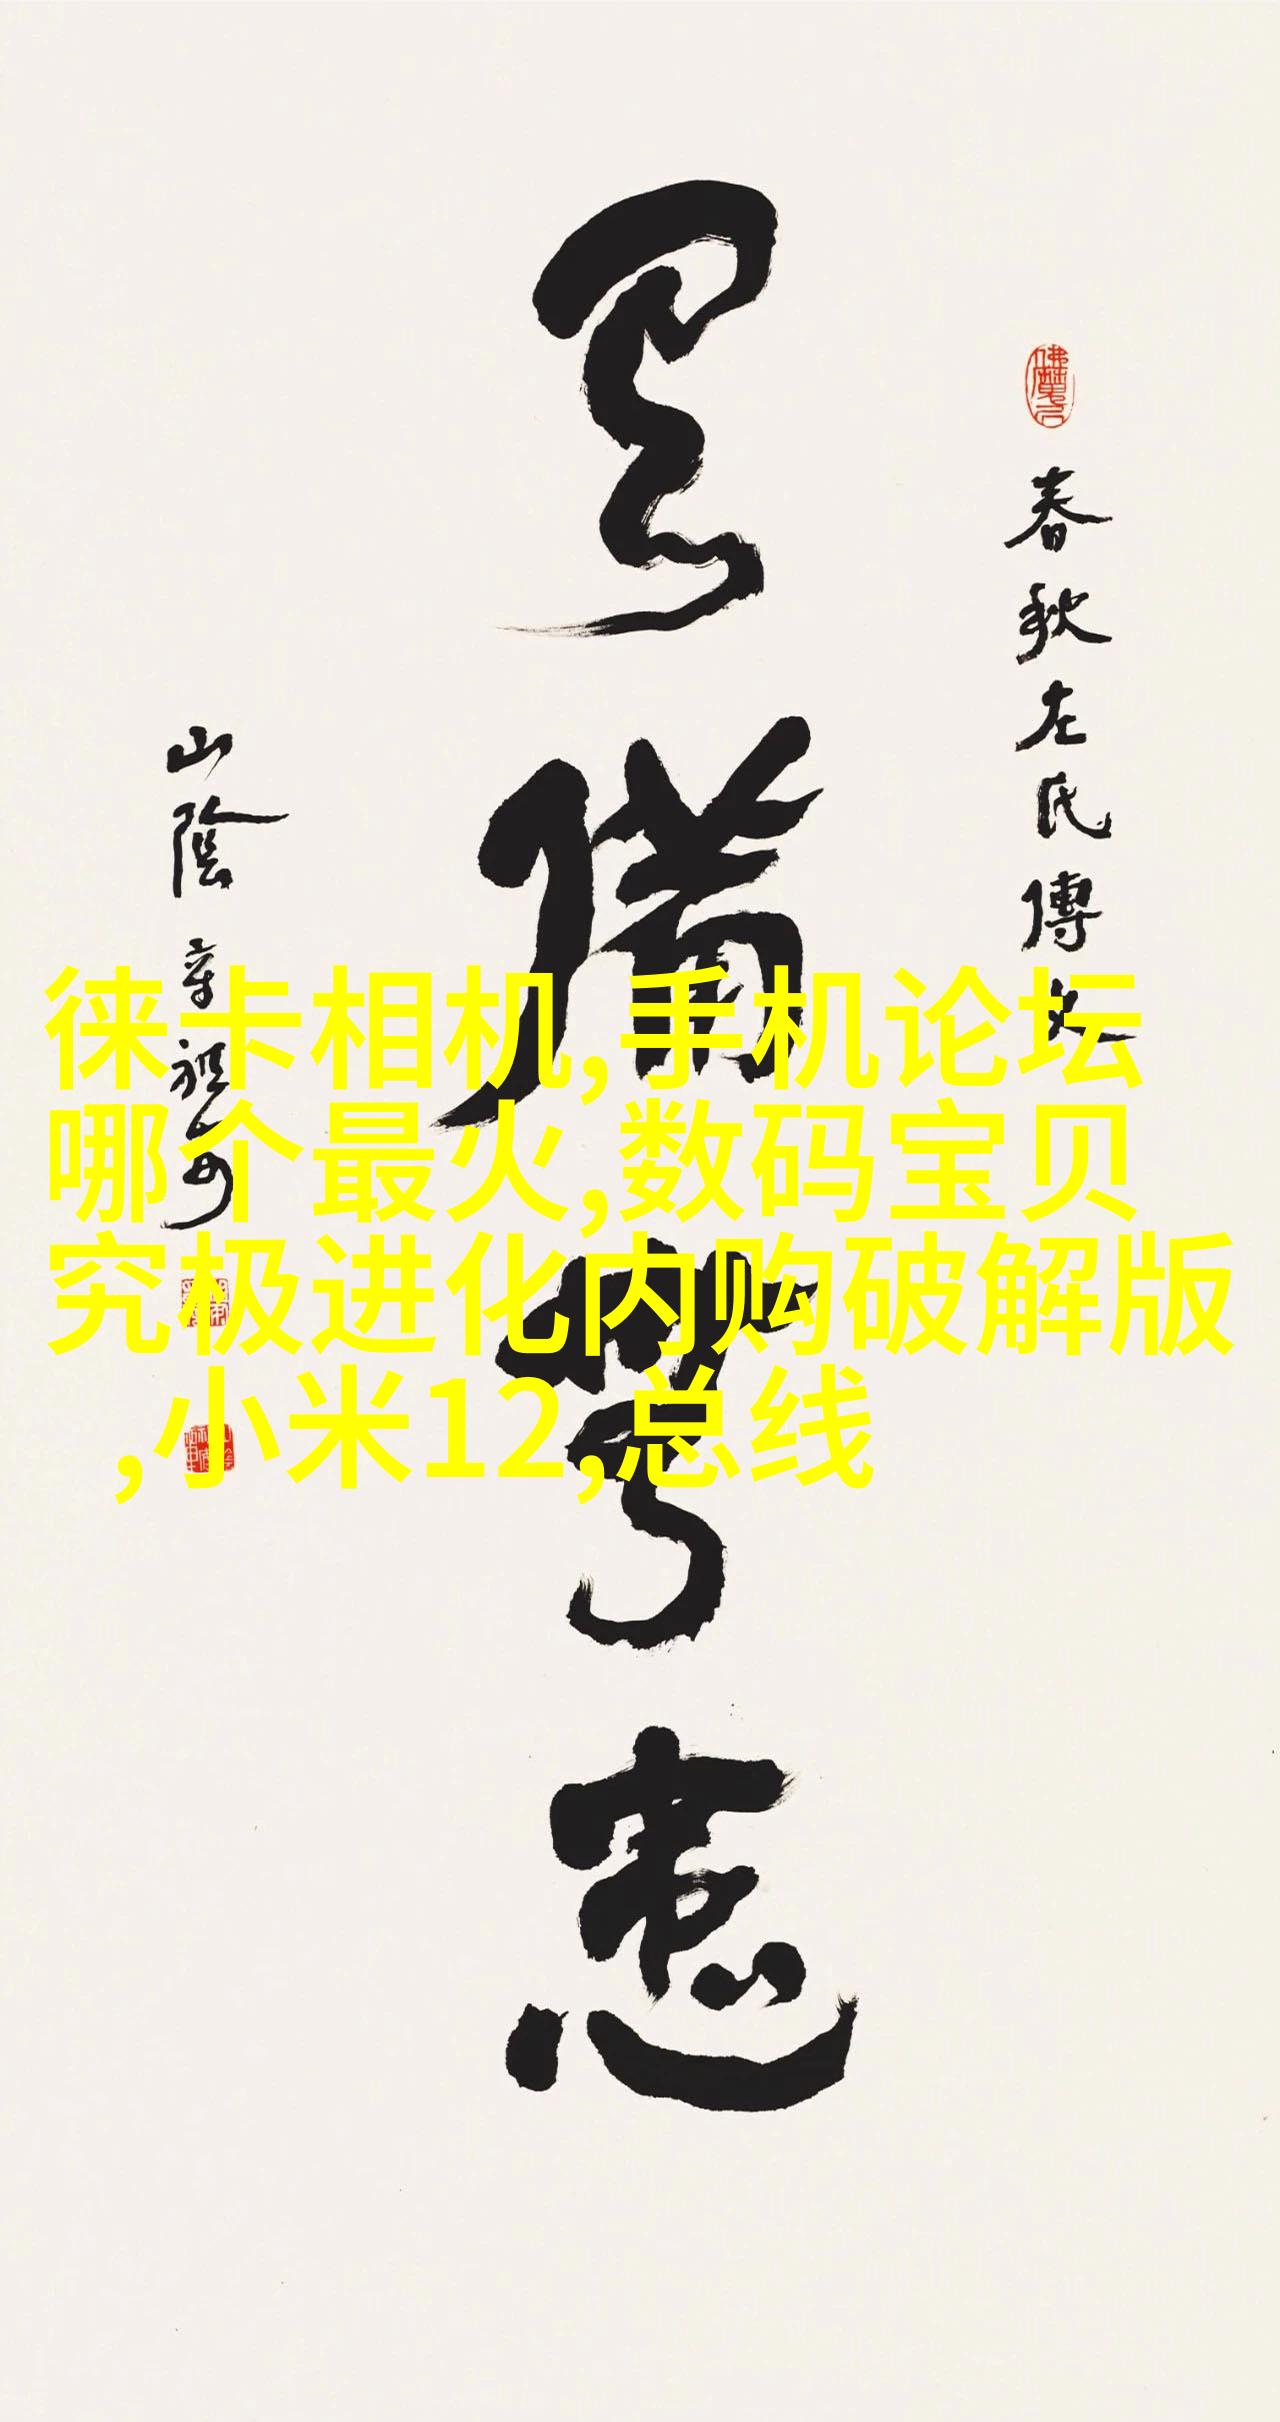 春秋左氏傳
備無患
山陰章祖安
徕卡相机,手机论坛
哪个最火,数码宝贝
究极进化内购破解版
,小米12,总线